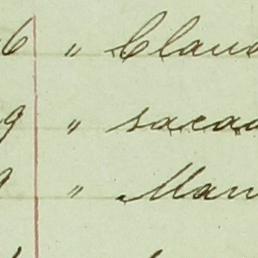 6 " Clau
9 " sacaa
9 " Man